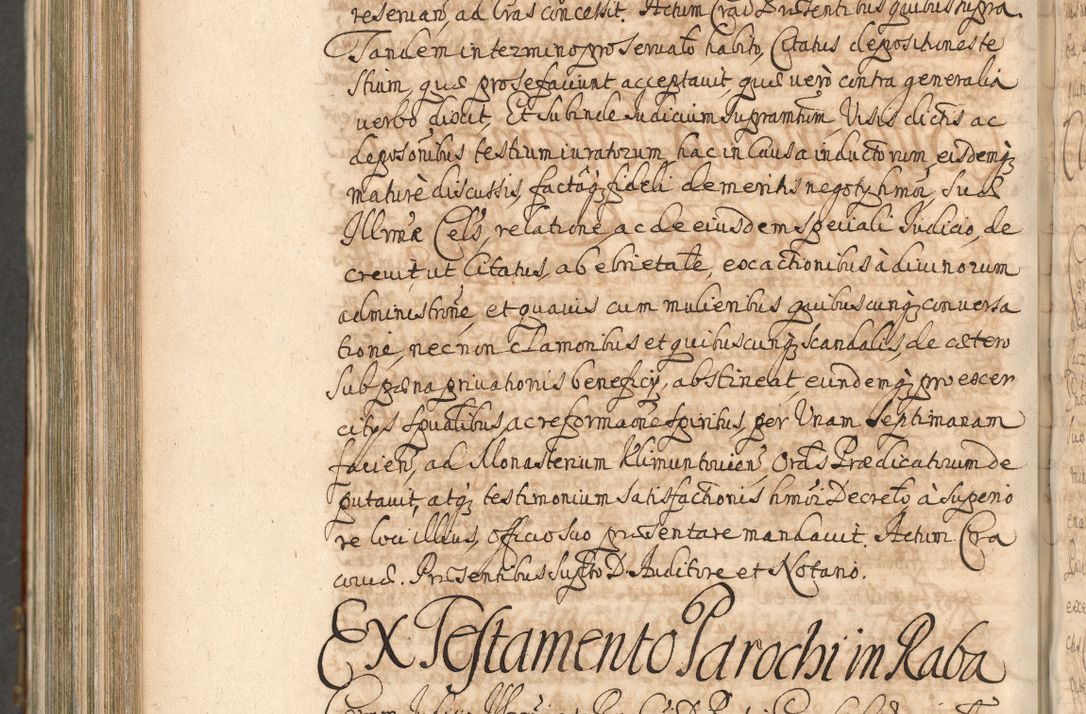 reservari, ad Cras concessit. Actum Crac. Præsentibus quibus supra.
Tandem in termino pro servato habito, Citatus depositiones te
stium, quæ pro se faciunt acceptavit, quæ verò contra generali
verbo dixit, Et subinde Judicium supramtum, Visis dictis ac
depositionibus testium iuratorum, hac in Causa inductorum, eisdemq;
maturè discussis, factâq; fideli de meritis negoty hmoi, suæ
Illmæ Cels, relatione, ac de eiusdem speciali Judicio, de
crevit, ut Citatus, ab ebrietate, exactionibus à divinorum
administrone, et quavis cum mulieribus quibuscunq; conversa
tione, nec non clamoribus et quibuscunq; scandalis, de cætero
sub pæna privationis beneficy, abstineat, eundemq; pro exer
citys spualibus, ac reformaone spiritus, per Unam Septimanam
facien, ad Monasterium Klimuntovien Ordis Prædicatorum de
putavit, atq; testimonium satisfactionis hmoi Decreto à superio
re loci illius, officio suo præsentare mandavit. Actum Cra
coviæ. Præsentibus supto D. Auditore et Notario.
Ex Testamento Parochi in Raba